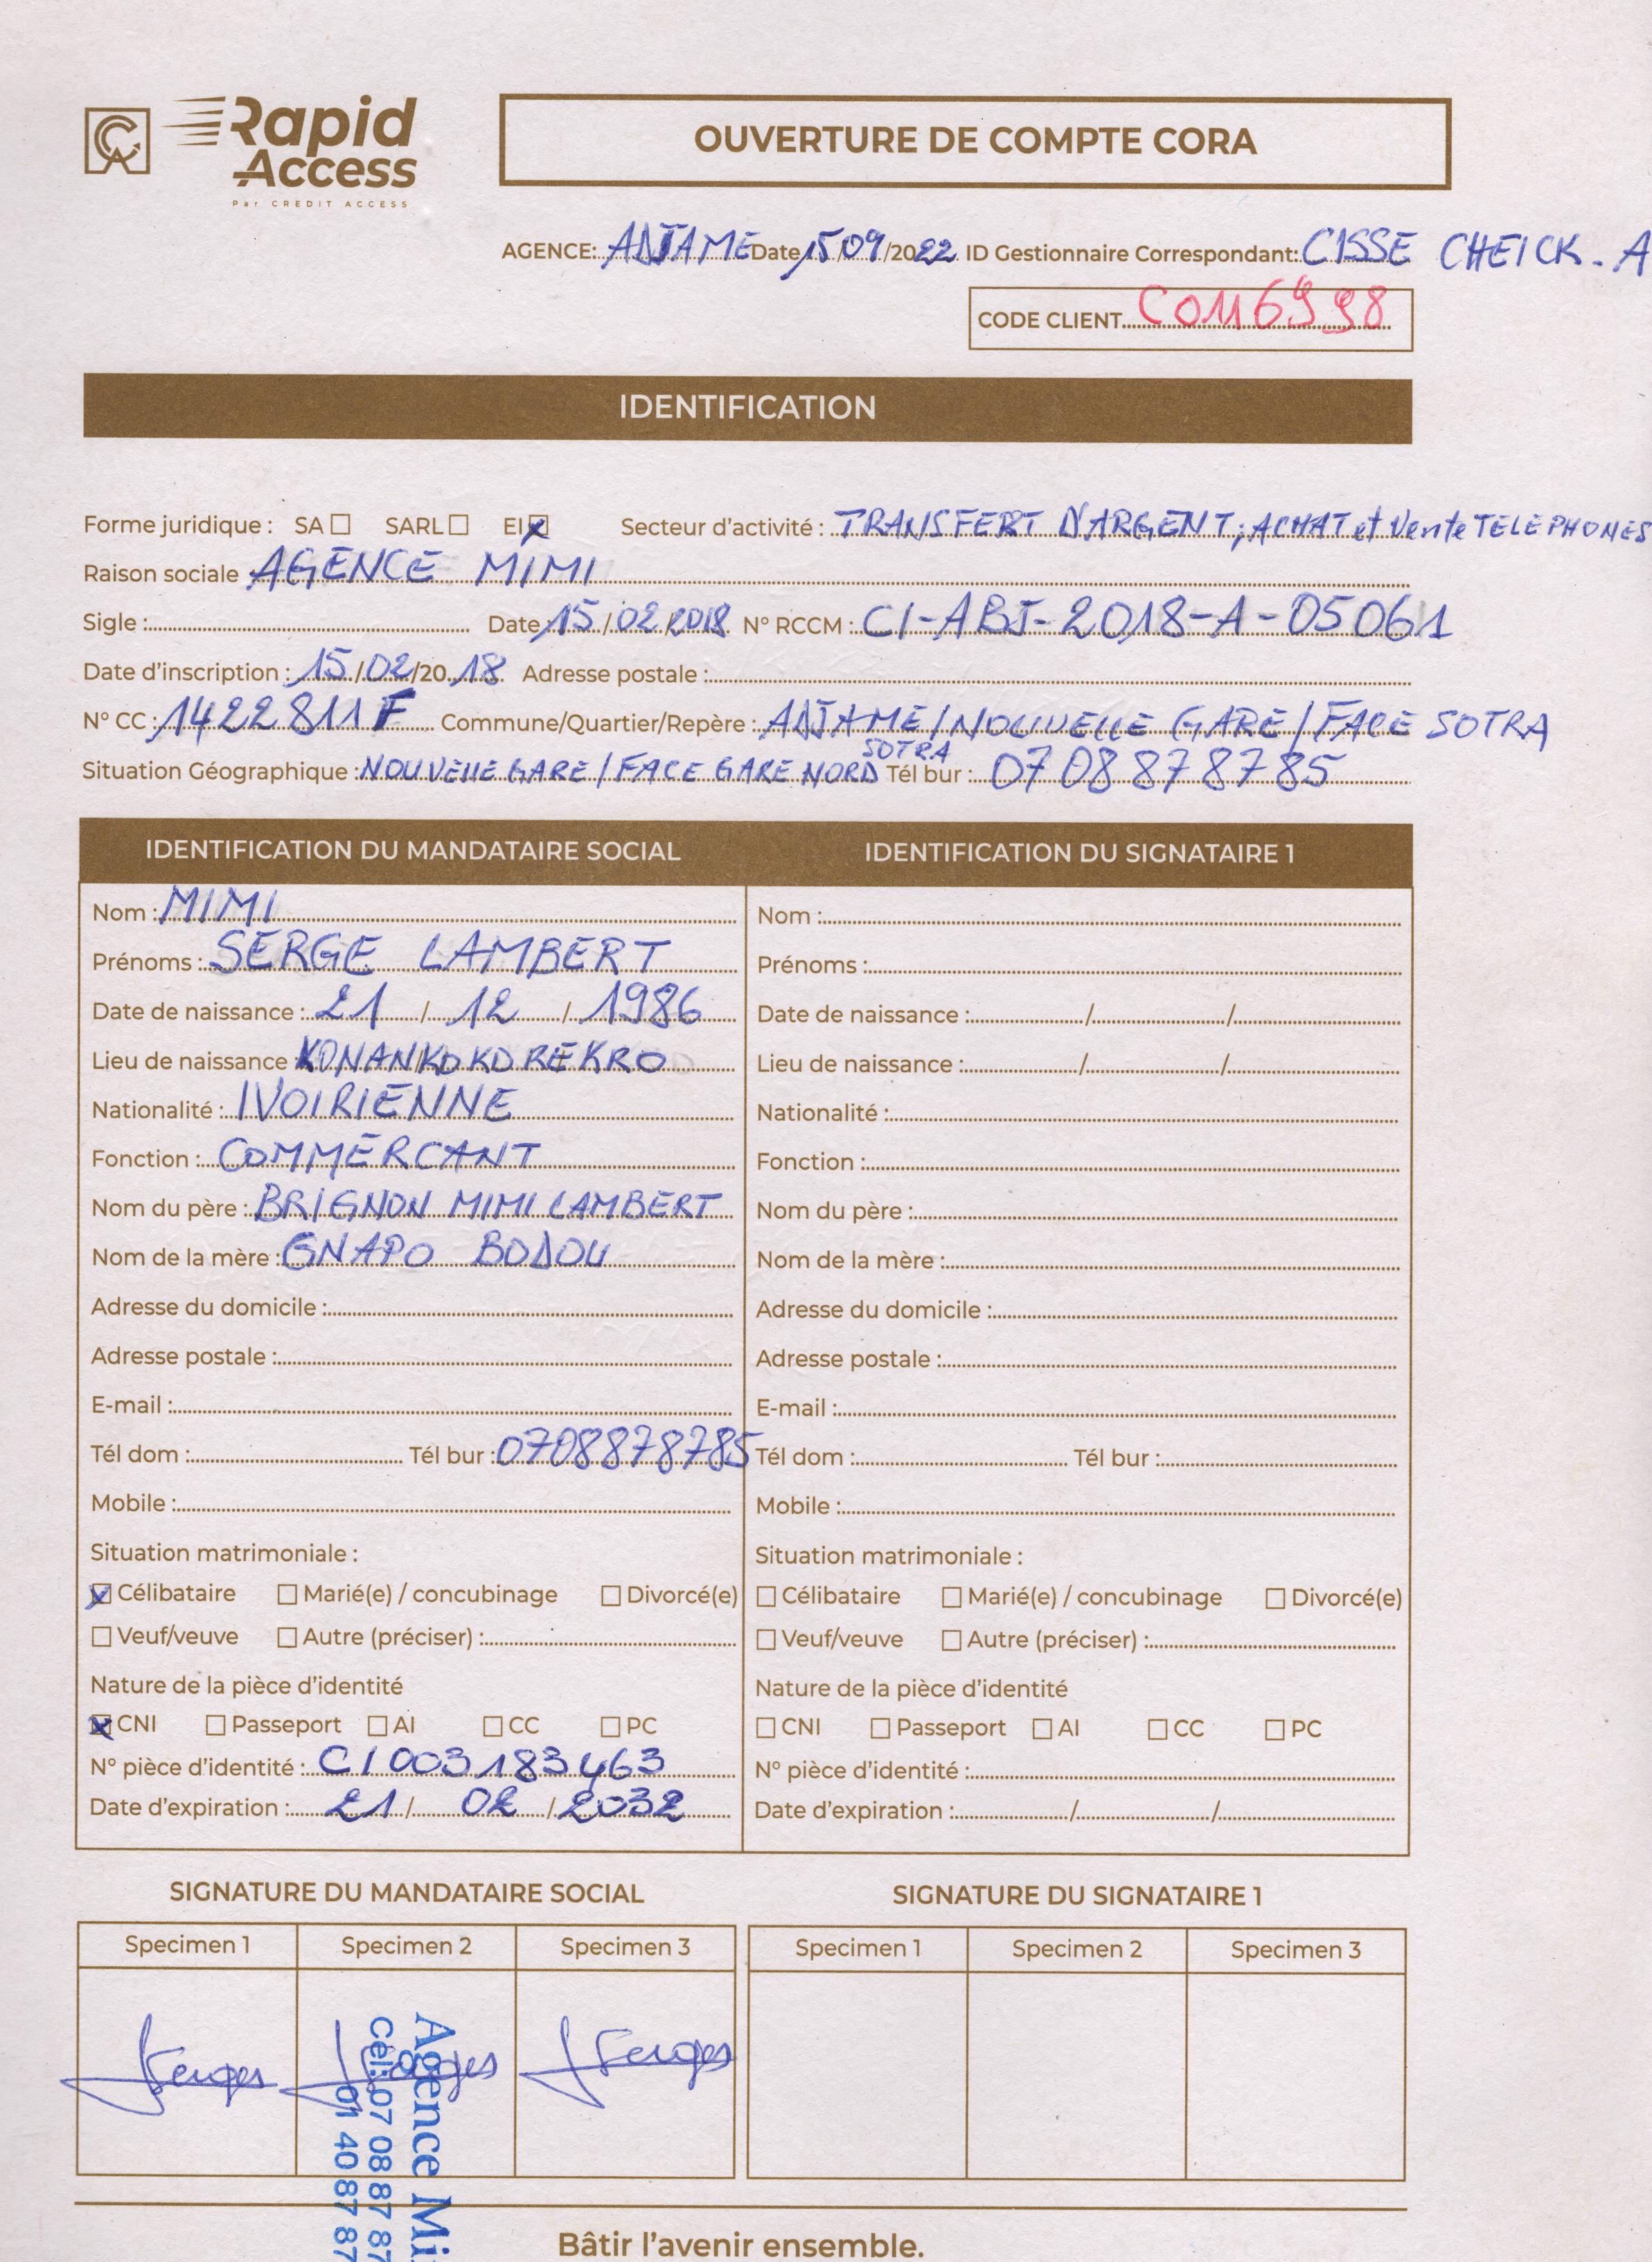 CA Rapid Access
Par CREDIT ACCESS
OUVERTURE DE COMPTE CORA
AGENCE: ADJAME Date 15/09/2022 ID Gestionnaire Correspondant: CISSE CHEICK. A
CODE CLIENT C0116998
IDENTIFICATION
Forme juridique : SA ☐ SARL ☐ EI ☒ Secteur d'activité : TRANSFERT D'ARGENT; ACHAT et Vente TELEPHONES
Raison sociale AGENCE MIMI
Sigle : Date 15/02/2018 N° RCCM : CI-ABJ-2018-A-05061
Date d'inscription : 15/02/2018 Adresse postale :
N° CC : 1422811F Commune/Quartier/Repère : ADJAME/NOUVELLE GARE/FACE SOTRA
Situation Géographique : NOUVELLE GARE/FACE GARE NORD SOTRA Tél bur : 07 08 87 87 85
IDENTIFICATION DU MANDATAIRE SOCIAL IDENTIFICATION DU SIGNATAIRE 1
Nom : MIMI Nom :
Prénoms : SERGE LAMBERT Prénoms :
Date de naissance : 21 / 12 / 1986 Date de naissance : / /
Lieu de naissance : KONANKOKOREKRO Lieu de naissance : / /
Nationalité : IVOIRIENNE Nationalité :
Fonction : COMMERCANT Fonction :
Nom du père : BRIGNON MIMI LAMBERT Nom du père :
Nom de la mère : GNAPO BODOU Nom de la mère :
Adresse du domicile : Adresse du domicile :
Adresse postale : Adresse postale :
E-mail : E-mail :
Tél dom : Tél bur : 0708878785 Tél dom : Tél bur :
Mobile : Mobile :
Situation matrimoniale : Situation matrimoniale :
☒ Célibataire ☐ Marié(e) / concubinage ☐ Divorcé(e) ☐ Célibataire ☐ Marié(e) / concubinage ☐ Divorcé(e)
☐ Veuf/veuve ☐ Autre (préciser) : ☐ Veuf/veuve ☐ Autre (préciser) :
Nature de la pièce d'identité Nature de la pièce d'identité
☒ CNI ☐ Passeport ☐ AI ☐ CC ☐ PC ☐ CNI ☐ Passeport ☐ AI ☐ CC ☐ PC
N° pièce d'identité : CI003183463 N° pièce d'identité :
Date d'expiration : 21 / 02 / 2032 Date d'expiration : / /
SIGNATURE DU MANDATAIRE SOCIAL SIGNATURE DU SIGNATAIRE 1
Specimen 1 Specimen 2 Specimen 3 Specimen 1 Specimen 2 Specimen 3
Serges Serges Serges
Agence Mi
Cel: 07 08 87 87
01 40 87 87
Bâtir l'avenir ensemble.